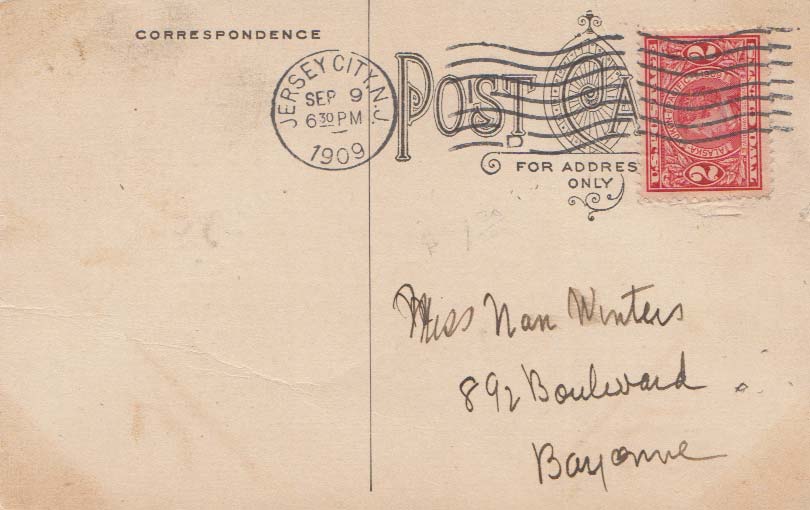 CORRESPONDENCE
JERSEY CITY, N.J.
SEP 9
6 30 PM
1909
POST CA
FOR ADDRES
ONLY
2
2
ALASKA
1909
Miss Nan Winters
892 Boulevard
Bayonne